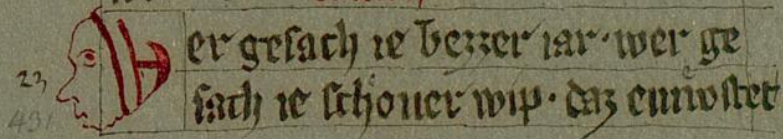 Wer gesach ie bezzer iar · wer ge
sach ie schoner wip · daz
23
431